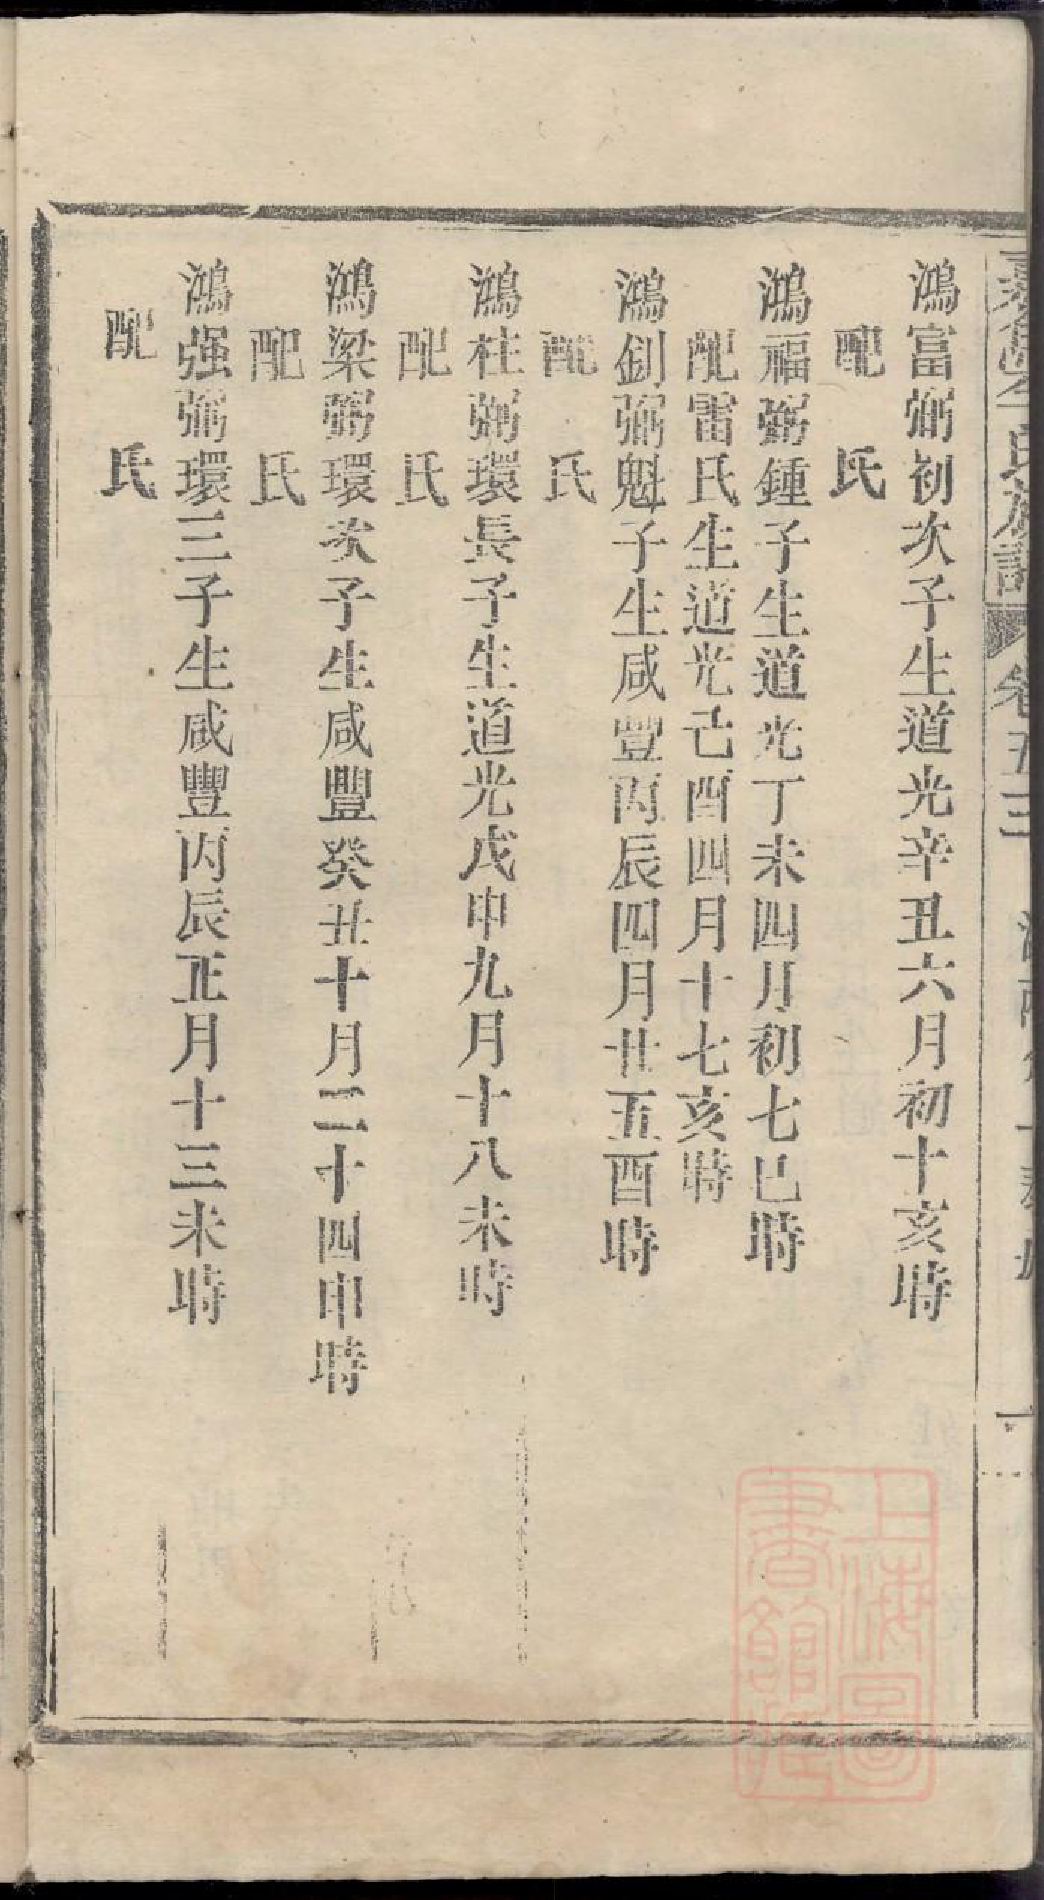 氏族譜
卷五三
鴻富弼初次子生道光辛丑六月初十亥時
配 氏
鴻福弼鍾子生道光丁未四月初七巳時
配雷氏生道光己酉四月十七亥時
鴻釗弼魁子生咸豐丙辰四月廿五酉時
配 氏
鴻柱弼環長子生道光戊申九月十八未時
配 氏
鴻梁弼環次子生咸豐癸丑十月二十四申時
配 氏
鴻强弼環三子生咸豐丙辰正月十三未時
配 氏
上海圖
書館藏